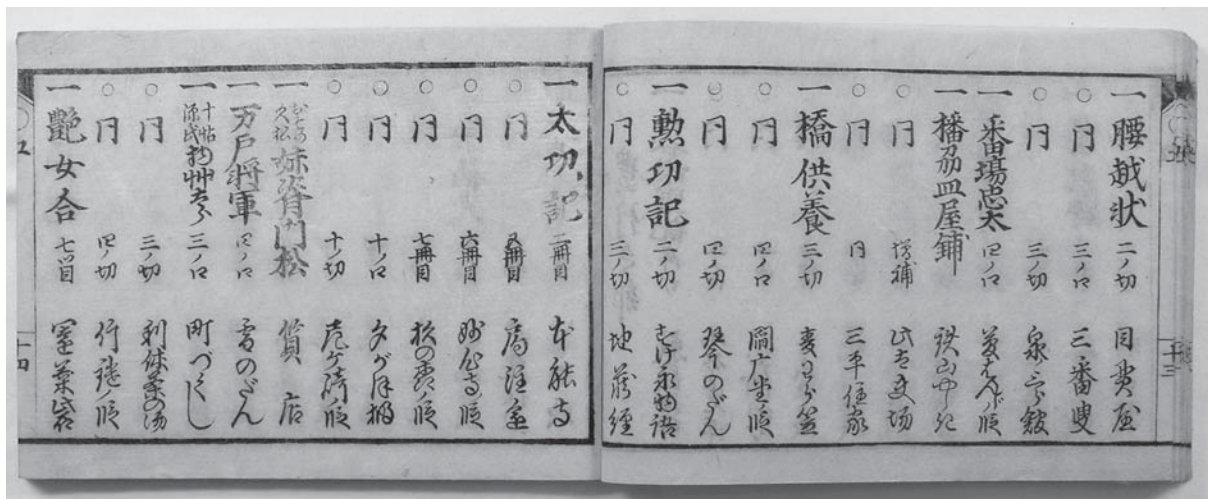 一 腰越状 二ノ切 目貫屋
○ 同 三ノ口 三番叟
○ 同 三ノ切 泉三郎館
一 番場忠太 四ノ口 道行の段
一 播州皿屋舗 鉄山やしき
○ 同 増補
○ 同 同 三平住家
一 橋供養 三ノ切 麦わら笠
○ 同 四ノ口 閻广堂ノ段
○ 同 四ノ切 琴のだん
一 勲功記 二ノ切 すけ永物語
○ 同 三ノ切 地蔵経
十三
一 太功記 二冊目 本能寺
○ 同 五冊目 局注進
○ 同 六冊目 妙心寺ノ段
○ 同 七冊目 杉の森ノ段
○ 同 十ノ口 夕がほ棚
○ 同 十ノ切 尼ケ崎ノ段
一 お染久松 妹背門松 質店
一 万戸将軍 四ノ口 雪のだん
一 十帖源氏物ぐさ太郎 三ノ口 町づくし
○ 同 三ノ切 利休茶の湯
○ 同 四ノ切
一 艶女合 七ツ目
十四